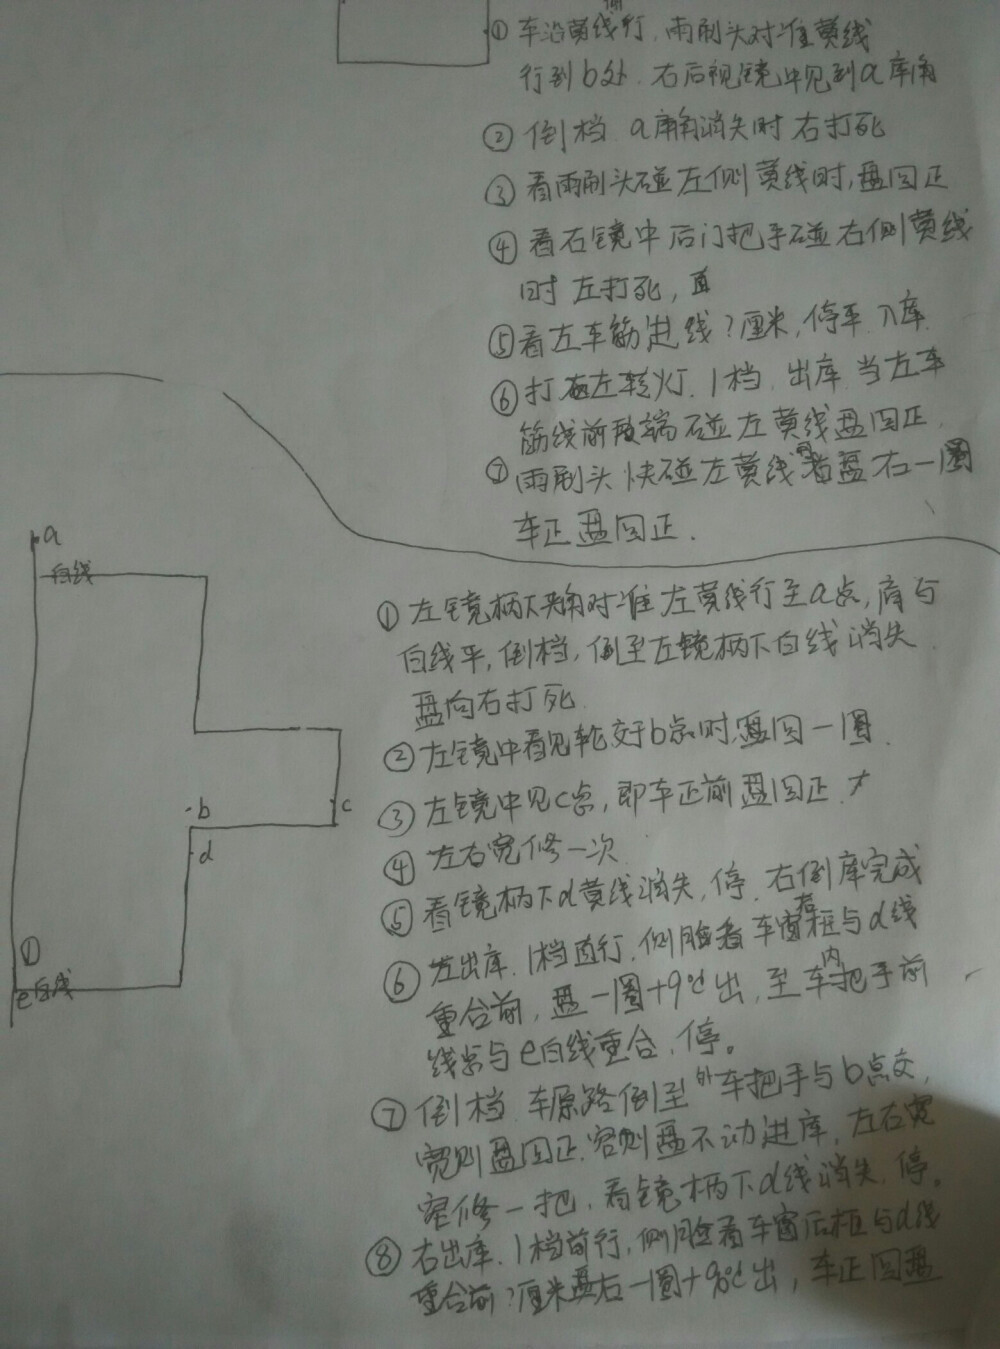 ① 车沿黄线行，雨刷头对准黄线
行到b处．右后视镜中见到a库角
② 倒档 a库角消失时 右打死
③ 看雨刷头碰左侧黄线时,盘回正
④ 看右镜中后门把手碰右侧黄线
时左打死，直
⑤ 看左车筋进线?厘米,停车.入库.
⑥ 打左转灯．1档．出库．当左车
筋线前端碰左黄线盘回正.
⑦ 雨刷头快碰左黄线 盘右一圈
车正盘回正．
a
白线
① 左镜柄下夹角对准左黄线行至a点，肩与
白线平，倒档，倒至左镜柄下白线消失．
盘向右打死
② 左镜中看见轮交于b点时,盘回一圈．
③ 左镜中见c点，即车正前盘回正．
b
c
d
④ 左右宽修一次
⑤ 看镜柄下d黄线消失．停．右倒库完成
⑥ 左出库．1档直行．侧脸看车窗框与d线
重合前，盘一圈+90℃出，至车内把手前
线点与e白线重合．停。
①
e白线
⑦ 倒档．车原路倒至外车把手与b点交，
宽则盘回正.窄则盘不动进库．左右宽
窄修一把，看镜柄下d线消失．停。
⑧ 右出库．1档前行，侧脸看车窗后框与d线
重合前?厘米盘右一圈+90℃出，车正回盘